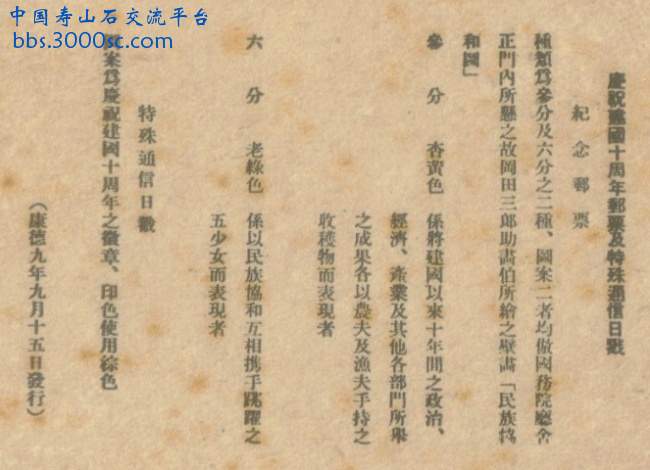 中国寿山石交流平台
bbs.3000sc.com
慶祝建國十周年郵票及特殊通信日戳
紀念郵票
種類爲參分及六分之二種、圖案二者均倣國務院廳舍
正門内所懸之故岡田三郎助畵伯所繪之壁畵「民族協
和圖」
參分 杏黄色 係將建國以來十年間之政治、
經濟、產業及其他各部門所舉
之成果各以農夫及漁夫手持之
收穫物而表現者
六分 老綠色 係以民族協和互相携手跳躍之
五少女而表現者
特殊通信日戳
案爲慶祝建國十周年之徽章、印色使用綜色
（康德九年九月十五日發行）